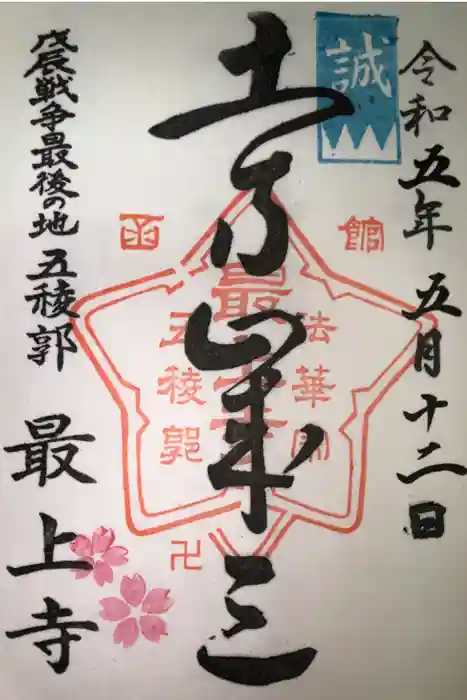 令和五年五月十二日
誠
土方歳三
函館
最上寺
法華宗
五稜郭
卍
戊辰戦争最後の地 五稜郭
最上寺